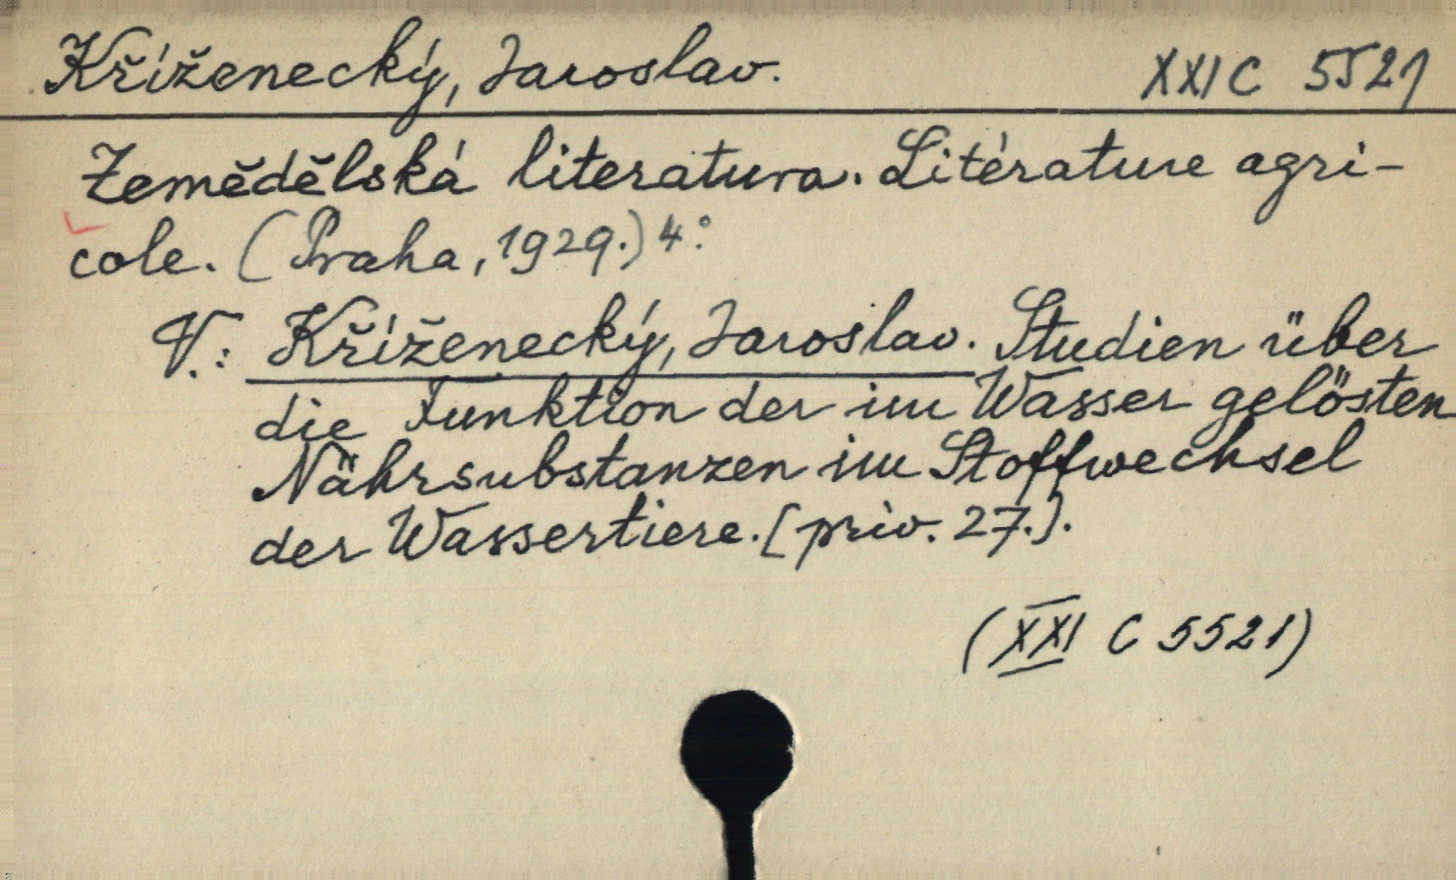 Kříženecký, Jaroslav. XXI C 5521
Zemědělská literatura. Litérature agri-
cole. (Praha, 1929.) 4°.
V.: Kříženecký, Jaroslav. Studien über
die Funktion der im Wasser gelösten
Nährsubstanzen im Stoffwechsel
der Wassertiere. [priv. 27.].
(XXI C 5521)